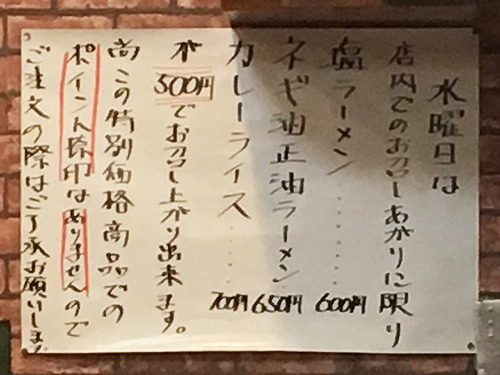 水曜日は
店内でのお召しあがりに限り
塩ラーメン......600円
ネギ油正油ラーメン...650円
カレーライス.....700円
が500円でお召し上がり出来ます。
尚この特別価格商品での
ポイント捺印はありませんので
ご注文の際はご了承お願いします。